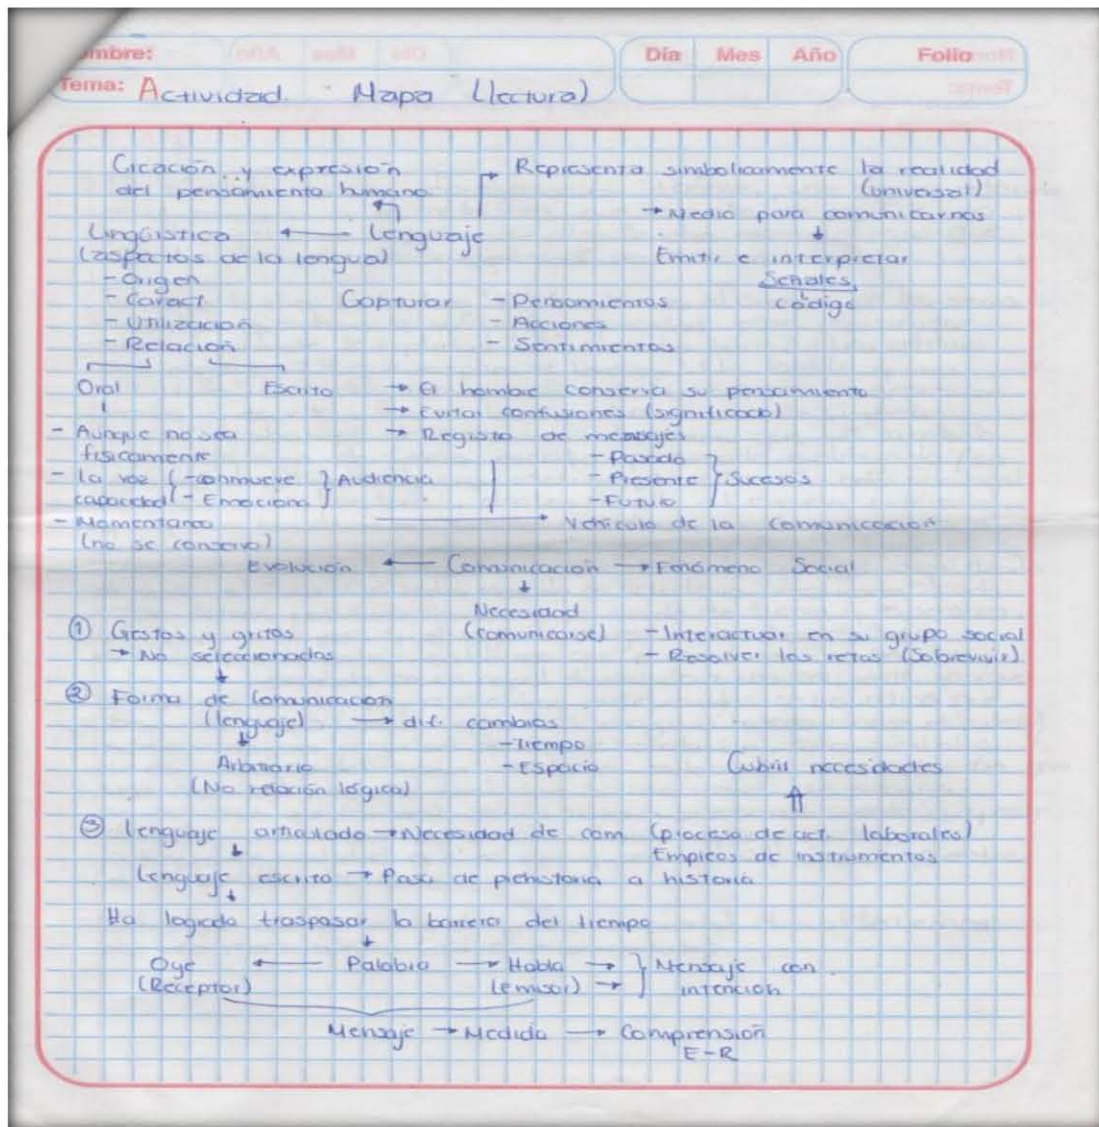 Nombre: Día Mes Año Folio
Tema: Actividad. Mapa (lectura)
Creación y expresión del pensamiento humano
Representa simbolicamente la realidad (universal)
→ Medio para comunicarnos
Lingüistica ← Lenguaje
(aspectos de la lengua)
Emitir e interpretar
Señales
código
- Origen
- Caract.
- Utilización
- Relación
Capturar - Pensamientos
- Acciones
- Sentimientos
Oral Escrito → El hombre conserva su pensamiento
→ Evitar confusiones (significado)
→ Registro de mensajes
- Pasado
- Presente } Sucesos
- Futuro
- Aunque no sea
fisicamente
- La voz (- conmueve } Audiencia
capacidad (- Emociona }
- Momentaneo → Vehiculo de la comunicación
(no se conserva)
Evolución ← Comunicación → Fenómeno Social
Necesidad
(comunicarse) - Interactuar en su grupo social
- Resolver los retos (Sobrevivir).
① Gestos y gritos
→ No seleccionados
② Forma de comunicación
(lenguaje) → dif. cambios
- Tiempo
- Espacio
Arbitrario
(No relación lógica)
Cubrir necesidades
③ Lenguaje articulado → Necesidad de com. (proceso de act. laborales)
Empleos de instrumentos
Lenguaje escrito → Pasa de prehistoria a historia
Ha logrado traspasar la barrera del tiempo
Oye ← Palabra → Habla → } Mensaje con
(Receptor) (emisor) → intención
Mensaje → Medida → Comprensión
E-R